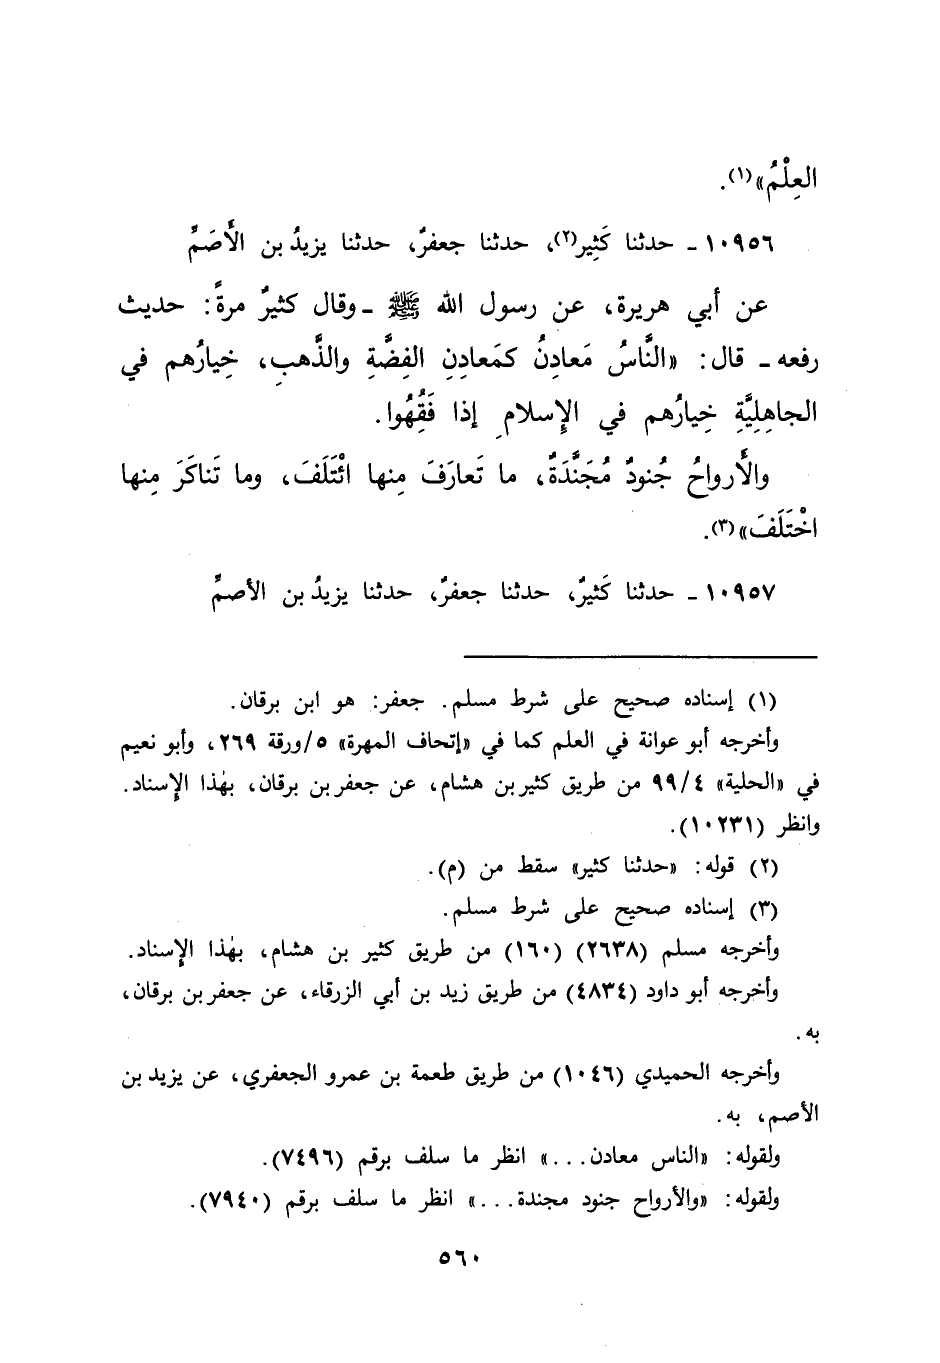 العِلْمُ»(١).
١٠٩٥٦ - حدثنا كَثِير(٢)، حدثنا جعفرٌ، حدثنا يزيدُ بن الأَصَمِّ
عن أبي هريرة، عن رسول الله ﷺ - وقال كثيرٌ مرةً: حديث
رفعه - قال: «النَّاسُ مَعادِنُ كمَعادِنِ الفِضَّةِ والذَّهبِ، خِيارُهم في
الجاهِلِيَّةِ خِيارُهم في الإِسلامِ إذا فَقُهُوا.
والأَرواحُ جُنودٌ مُجَنَّدَةٌ، ما تَعارَفَ مِنها ائْتَلَفَ، وما تَناكَرَ مِنها
اخْتَلَفَ»(٣).
١٠٩٥٧ - حدثنا كَثيرٌ، حدثنا جعفرٌ، حدثنا يزيدُ بن الأصمِّ
(١) إسناده صحيح على شرط مسلم. جعفر: هو ابن برقان.
وأخرجه أبو عوانة في العلم كما في «إتحاف المهرة» ٥/ورقة ٢٦٩، وأبو نعيم
في «الحلية» ٩٩/٤ من طريق كثير بن هشام، عن جعفر بن برقان، بهٰذا الإِسناد.
وانظر (١٠٢٣١).
(٢) قوله: «حدثنا كثير» سقط من (م).
(٣) إسناده صحيح على شرط مسلم.
وأخرجه مسلم (٢٦٣٨) (١٦٠) من طريق كثير بن هشام، بهٰذا الإِسناد.
وأخرجه أبو داود (٤٨٣٤) من طريق زيد بن أبي الزرقاء، عن جعفر بن برقان،
به.
وأخرجه الحميدي (١٠٤٦) من طريق طعمة بن عمرو الجعفري، عن يزيد بن
الأصم، به.
ولقوله: «الناس معادن...» انظر ما سلف برقم (٧٤٩٦).
ولقوله: «والأرواح جنود مجندة...» انظر ما سلف برقم (٧٩٤٠).
٥٦٠